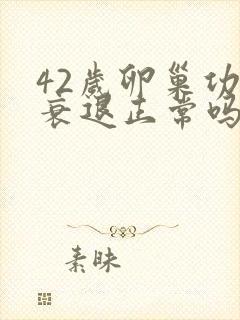 42岁卵巢功
衰退正常吗
素昧